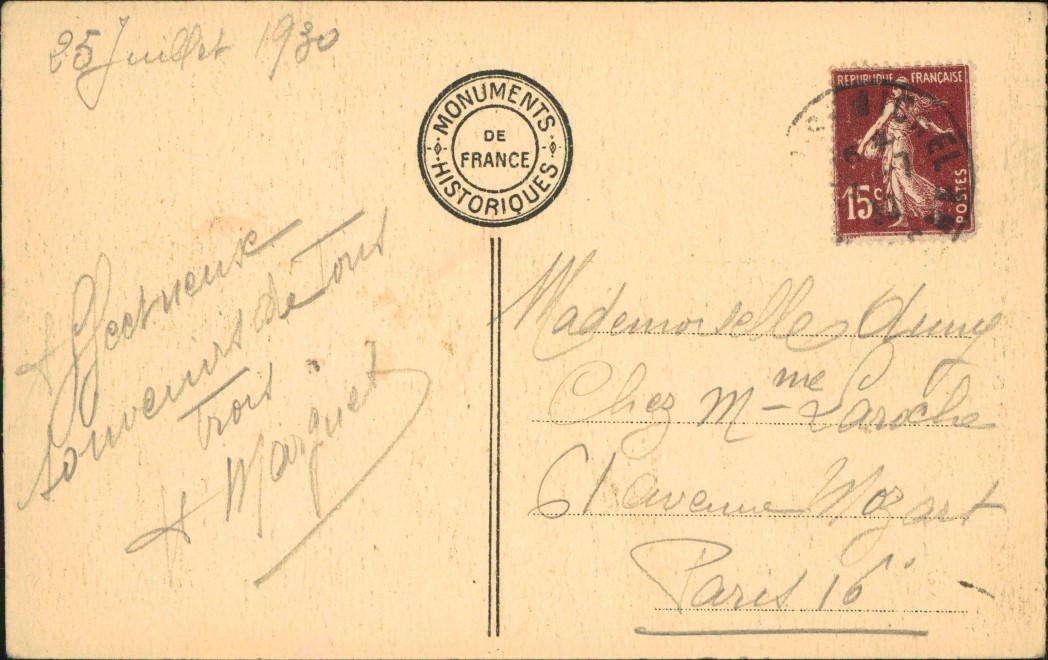 25 Juillet 1930
MONUMENTS
HISTORIQUES
DE
FRANCE
REPUBLIQUE FRANÇAISE
15c
POSTES
Affectueux
Souvenirs de tous
trois
H Marquet
Mademoiselle
Chez Mme Laroche
61 avenue Mozart
Paris 16